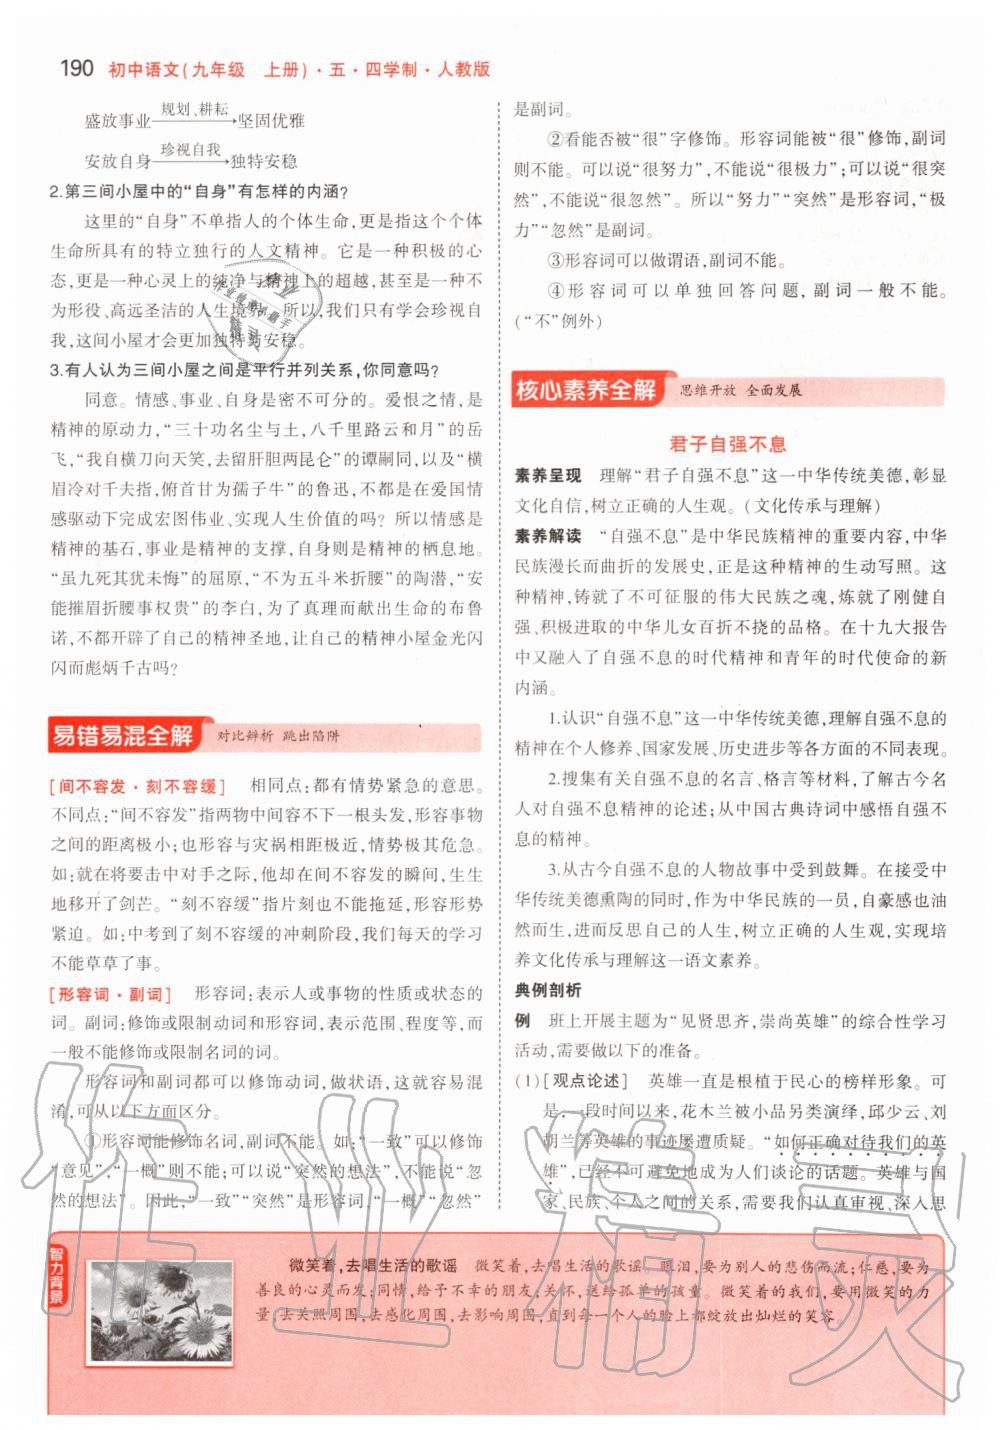 190 初中语文(九年级 上册)·五·四学制·人教版
盛放事业——规划、耕耘——→坚固优雅
安放自身——珍视自我——→独特安稳
2.第三间小屋中的“自身”有怎样的内涵?
这里的“自身”不单指人的个体生命,更是指这个个体
生命所具有的特立独行的人文精神。它是一种积极的心
态,更是一种心灵上的纯净与精神上的超越,甚至是一种不
为形役、高远圣洁的人生境界。所以,我们只有学会珍视自
我,这间小屋才会更加独特与安稳。
3.有人认为三间小屋之间是平行并列关系,你同意吗?
同意。情感、事业、自身是密不可分的。爱恨之情,是
精神的原动力,“三十功名尘与土,八千里路云和月”的岳
飞,“我自横刀向天笑,去留肝胆两昆仑”的谭嗣同,以及“横
眉冷对千夫指,俯首甘为孺子牛”的鲁迅,不都是在爱国情
感驱动下完成宏图伟业、实现人生价值的吗? 所以情感是
精神的基石,事业是精神的支撑,自身则是精神的栖息地。
“虽九死其犹未悔”的屈原,“不为五斗米折腰”的陶潜,“安
能摧眉折腰事权贵”的李白,为了真理而献出生命的布鲁
诺,不都开辟了自己的精神圣地,让自己的精神小屋金光闪
闪而彪炳千古吗?
易错易混全解 对比辩析 跳出陷阱
[间不容发·刻不容缓] 相同点:都有情势紧急的意思。
不同点:“间不容发”指两物中间容不下一根头发,形容事物
之间的距离极小;也形容与灾祸相距极近,情势极其危急。
如:就在将要击中对手之际,他却在间不容发的瞬间,生生
地移开了剑芒。“刻不容缓”指片刻也不能拖延,形容形势
紧迫。如:中考到了刻不容缓的冲刺阶段,我们每天的学习
不能草草了事。
[形容词·副词] 形容词:表示人或事物的性质或状态的
词。副词:修饰或限制动词和形容词,表示范围、程度等,而
一般不能修饰或限制名词的词。
形容词和副词都可以修饰动词,做状语,这就容易混
淆,可从以下方面区分。
①形容词能修饰名词,副词不能。如:“一致”可以修饰
“意见”,“一概”则不能;可以说“突然的想法”,不能说“忽
然的想法”。因此,“一致”“突然”是形容词,“一概”“忽然”
是副词。
②看能否被“很”字修饰。形容词能被“很”修饰,副词
则不能。可以说“很努力”,不能说“很极力”;可以说“很突
然”,不能说“很忽然”。所以“努力”“突然”是形容词,“极
力”“忽然”是副词。
③形容词可以做谓语,副词不能。
④形容词可以单独回答问题,副词一般不能。
(“不”例外)
核心素养全解 思维开放 全面发展
君子自强不息
素养呈现 理解“君子自强不息”这一中华传统美德,彰显
文化自信,树立正确的人生观。(文化传承与理解)
素养解读 “自强不息”是中华民族精神的重要内容,中华
民族漫长而曲折的发展史,正是这种精神的生动写照。这
种精神,铸就了不可征服的伟大民族之魂,炼就了刚健自
强、积极进取的中华儿女百折不挠的品格。在十九大报告
中又融入了自强不息的时代精神和青年的时代使命的新
内涵。
1.认识“自强不息”这一中华传统美德,理解自强不息的
精神在个人修养、国家发展、历史进步等各方面的不同表现。
2.搜集有关自强不息的名言、格言等材料,了解古今名
人对自强不息精神的论述;从中国古典诗词中感悟自强不
息的精神。
3.从古今自强不息的人物故事中受到鼓舞。在接受中
华传统美德熏陶的同时,作为中华民族的一员,自豪感也油
然而生,进而反思自己的人生,树立正确的人生观,实现培
养文化传承与理解这一语文素养。
典例剖析
例 班上开展主题为“见贤思齐,崇尚英雄”的综合性学习
活动,需要做以下的准备。
(1)[观点论述] 英雄一直是根植于民心的榜样形象。可
是,一段时间以来,花木兰被小品另类演绎,邱少云、刘
胡兰等英雄的事迹屡遭质疑。“如何正确对待我们的英
雄”,已经不可避免地成为人们谈论的话题。英雄与国
家、民族、个人之间的关系,需要我们认真审视、深入思
智力背景
微笑着,去唱生活的歌谣 微笑着,去唱生活的歌谣。眼泪,要为别人的悲伤而流;仁慈,要为
善良的心灵而发;同情,给予不幸的朋友;关怀,送给孤单的孩童。微笑着的我们,要用微笑的力
量,去关照周围,去感化周围,去影响周围,直到每一个人的脸上都绽放出灿烂的笑容。
作业精灵